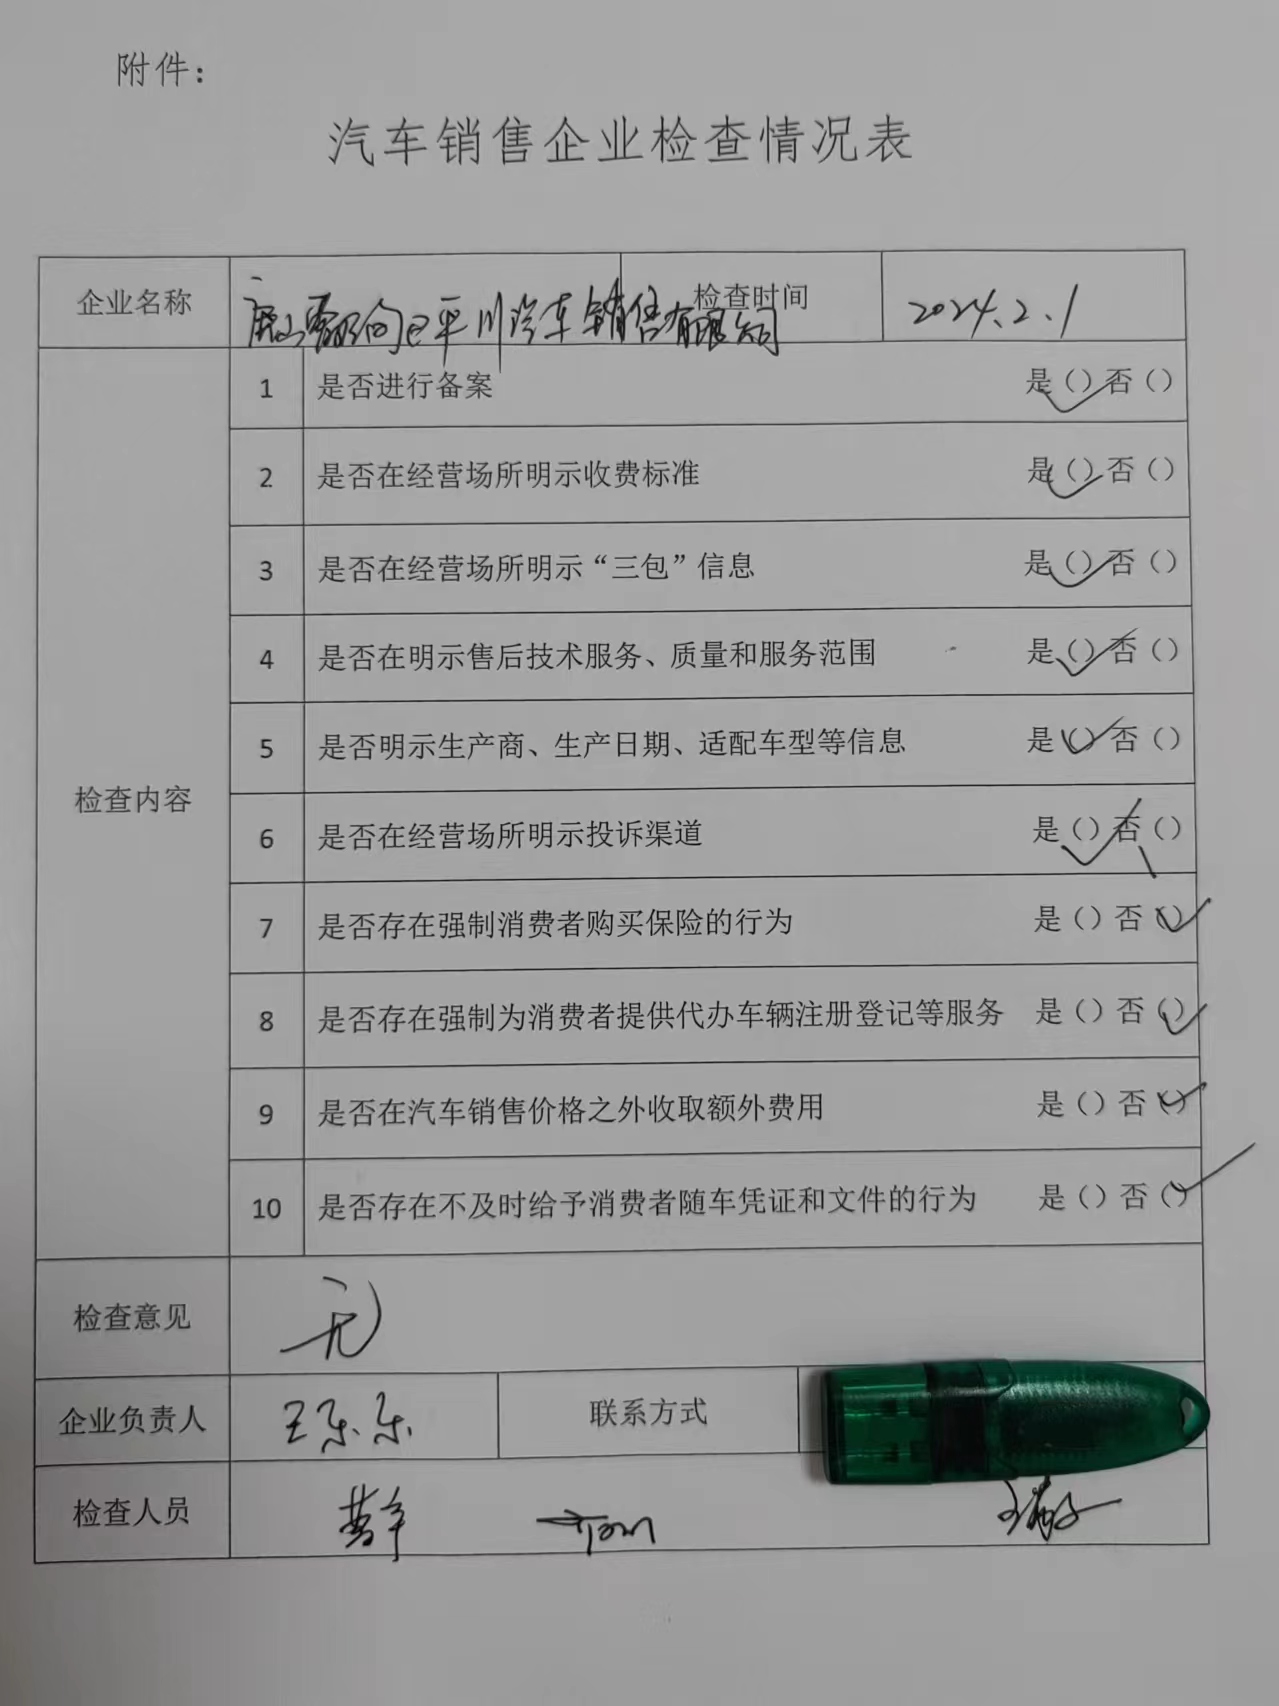 附件：
汽车销售企业检查情况表
企业名称 平川汽车销售有限公司 检查时间 2024.2.1
检查内容
1 是否进行备案 是（）否（）
2 是否在经营场所明示收费标准 是（）否（）
3 是否在经营场所明示“三包”信息 是（）否（）
4 是否在明示售后技术服务、质量和服务范围 是（）否（）
5 是否明示生产商、生产日期、适配车型等信息 是（）否（）
6 是否在经营场所明示投诉渠道 是（）否（）
7 是否存在强制消费者购买保险的行为 是（）否（）
8 是否存在强制为消费者提供代办车辆注册登记等服务 是（）否（）
9 是否在汽车销售价格之外收取额外费用 是（）否（）
10 是否存在不及时给予消费者随车凭证和文件的行为 是（）否（）
检查意见 无
企业负责人 王乐乐 联系方式
检查人员